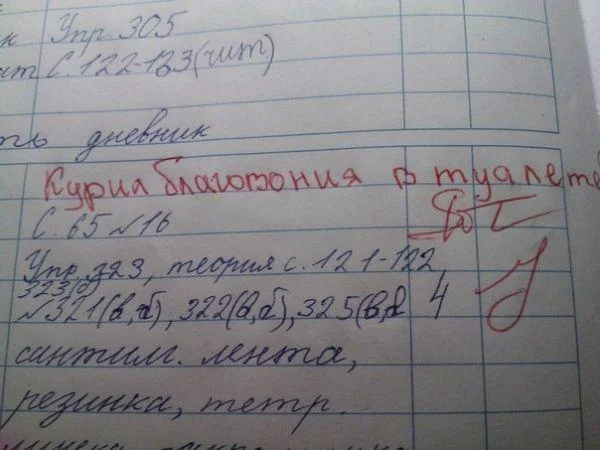 к Упр. 305
ат С. 122-123(чит)
ть дневник
Курил благовония в туалете
С. 65 №16
Упр. 323, теория с. 121-122,
323(б)
№321(в,б), 322(а,б), 325(в,б 4
сантим. лента,
резинка, тетр.